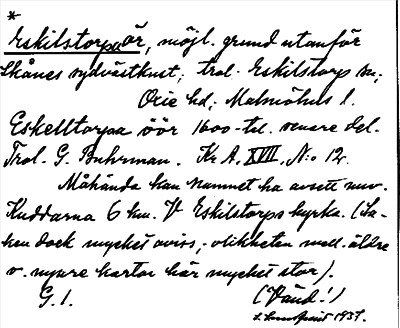 *
Eskilstorpaör, möjl. grund utanför
Skånes sydvästkust; trol. Eskilstorp sn;
Oxie hd; Malmöhus l.
Eskelltorpaa öör 1600-tal. senare del.
Trol. G. Buhrman. Kr A. XVII. N:o 12.
Måhända kan namnet ha avsett nuv.
Kuddarna 6 km. V Eskilstorps kyrka. (Sa-
ken dock mycket oviss; olikheten mell. äldre
o. nyare kartor här mycket stor).
G. 1. (Vänd!)
1937.